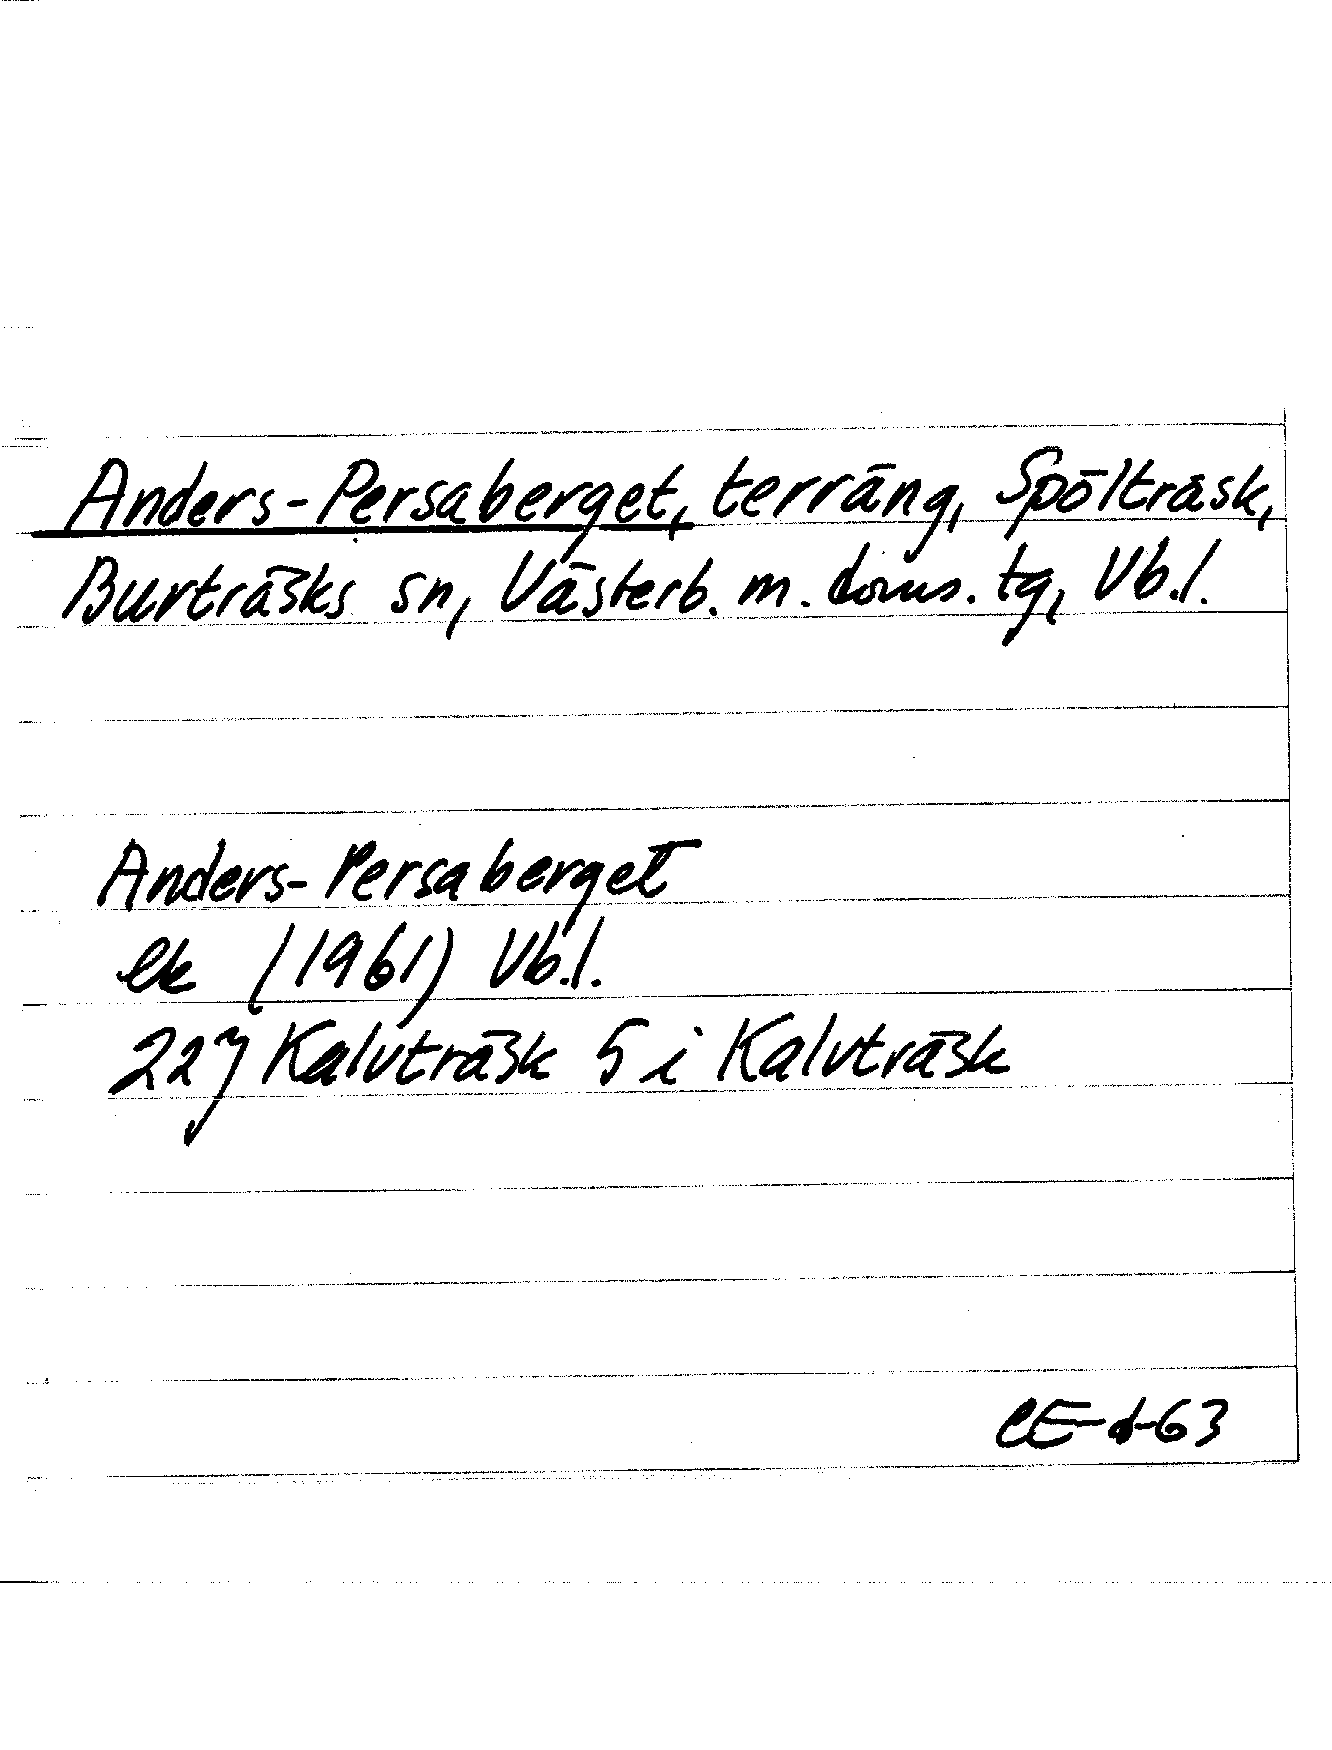 Anders-Persaberget, terräng, Spölträsk,
Burträsks sn, Västerb. m. doms. tg, Vb.l.
Anders-Persaberget
ek (1961) Vb.l.
22J Kalvträsk 5 i Kalvträsk
CE-d-63